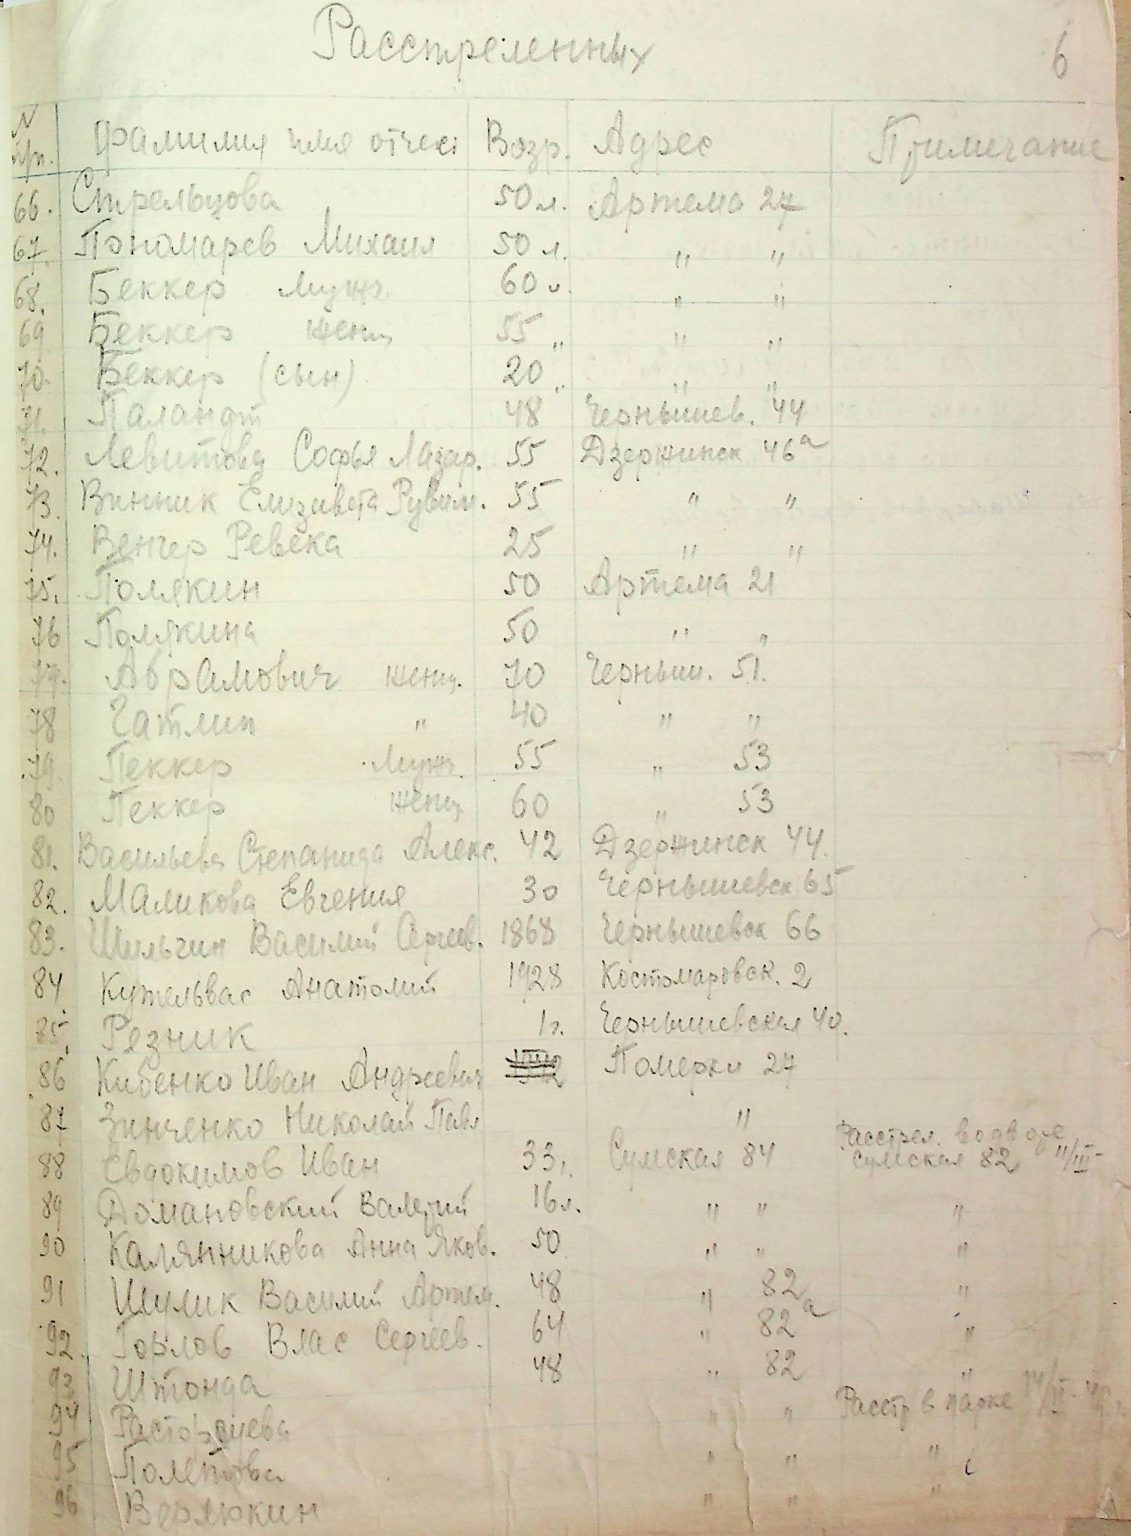 Расстреленных
6
N п/п. Фамилия имя отчест Возр. Адрес Примечание
66. Стрельцова 50 л. Артема 27
67. Пономарев Михаил 50 л. " "
68. Беккер Мужч. 60 л. " "
69 Беккер женщ 55 " " "
70. Беккер (сын) 20 " " "
71. Паландт 48 Чернышев. 44
72. Левитова Софья Лазар. 55 Дзержинск 46а
73. Винник Елизавета Рувим. 55 " "
74. Венгер Ревека 25 " "
75. Полякин 50 Артема 21
76 Полякина 50 " "
77. Абрамович женщ. 70 Черныш. 51.
78 Гатлип " 40 " "
79. Пеккер Мужч. 55 " 53
80 Пеккер женщ 60 " 53
81. Васильева Степанида Алекс. 42 Дзержинск 44.
82. Маликова Евгения 30 Чернышевск 65
83. Шульгин Василий Сергеев. 1868 Чернышевск 66
84. Кужельвас Анатолий 1928 Костомаровск. 2
85. Резник 1г. Чернышевская 40.
86 Кибенко Иван Андреевич Померки 27
87 Зинченко Николай Павл "
88 Евдокимов Иван 33г. Сумская 84 Расстрел. во дворе
Сумская 82 11/III-
89 Домановский Валерий 16л. " " "
90 Калянникова Анна Яков. 50 " " "
91 Шулик Василий Артем. 48 " 82 "
92. Горлов Влас Сергеев. 64 " 82а "
93 Штонда 48 " 82 "
94 Расторгуева " " Расстр в парке
95 Полетова " " "
96 Верякин " " "